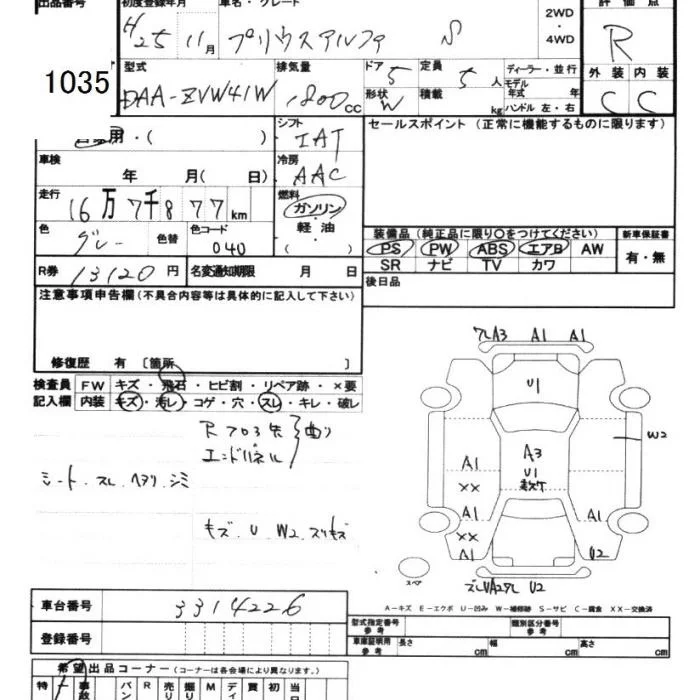 出品番号 初度登録年月 車名・グレード 評価点
H25 11月 プリウスアルファ S 2WD・4WD R
1035
型式 排気量 ドア 5 定員 5人 ディーラー・並行 外装 内装
DAA-ZVW41W 1800cc 形状 W 積載 kg モデル年式 年 ハンドル 左・右 C C
自家用・( ) シフト IAT セールスポイント (正常に機能するものに限ります)
車検 年 月( 日) 冷房 AAC
走行 16万7千877km 燃料 ガソリン・軽油・( )
色 グレー 色替 色コード 040
装備品 (純正品に限り○をつけてください) 新車保証書
PS PW ABS エアB AW 有・無
SR ナビ TV カワ
R券 13120円 名変通知期限 月 日 後日品
注意事項申告欄(不具合内容等は具体的に記入して下さい)
修復歴 有 〔箇所 〕
検査員 FW キズ・飛石・ヒビ割・リペア跡・×要
記入欄 内装 キズ・汚レ・コゲ・穴・スレ・キレ・破レ
R フロア先
エンドパネル 曲り
シート.スレ.ヘタリ.シミ
キズ.U W2.スリキズ
フレA3 A1 A1
U1
W2
A3
U1
A1
××
A1 A1
××
A1 U2
U2
スペア
A-キズ E-エクボ U-凹み W-補修跡 S-サビ C-腐食 XX-交換済
車台番号 3314226
型式指定番号 参考 類別区分番号 参考
登録番号 車庫証明用 参考 長さ cm 幅 cm 高さ cm
希望出品コーナー (コーナーは各会場により異なります。)